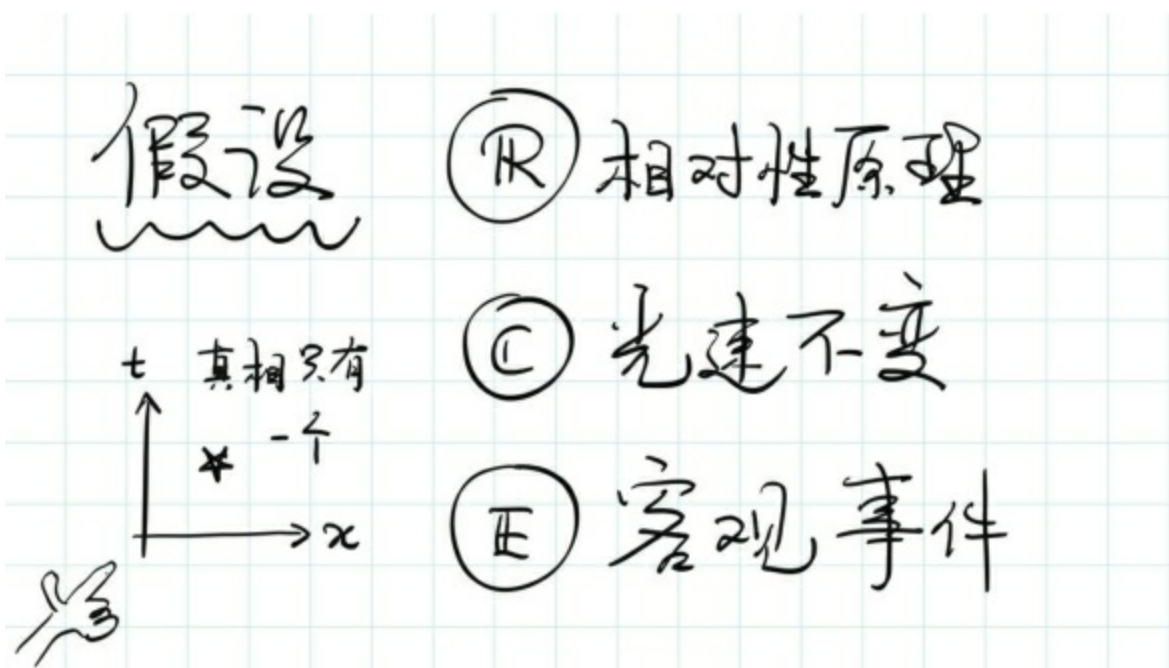 假设
Ⓡ 相对性原理
Ⓒ 光速不变
Ⓔ 客观事件
t
真相只有
一个
x